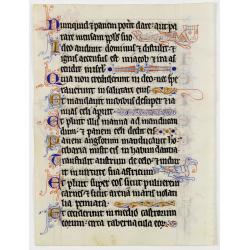 Numquid et panem poterit dare: aut pa
rare mensam populo suo
Ideo audivit dominus et distulit: et
ignis accensus est in iacob et ira as
cendit in isrl
Quia non crediderunt in deo: nec spe
raverunt in salutari eius
Et mandavit nubibus desuper: et ia
nuas celi aperuit
Et pluit illis manna ad manducan
dum: et panem celi dedit eis
Panem angelorum manducavit ho
cibaria misit eis in habundantia
Transtulit austrum de celo: et indux
it in virtute sua affricum
Et pluit super eos sicut pulverem
carnes: et sicut arena maris volati
lia pennata
Et ceciderunt in medio castrorum
eorum: circa tabernacula eor